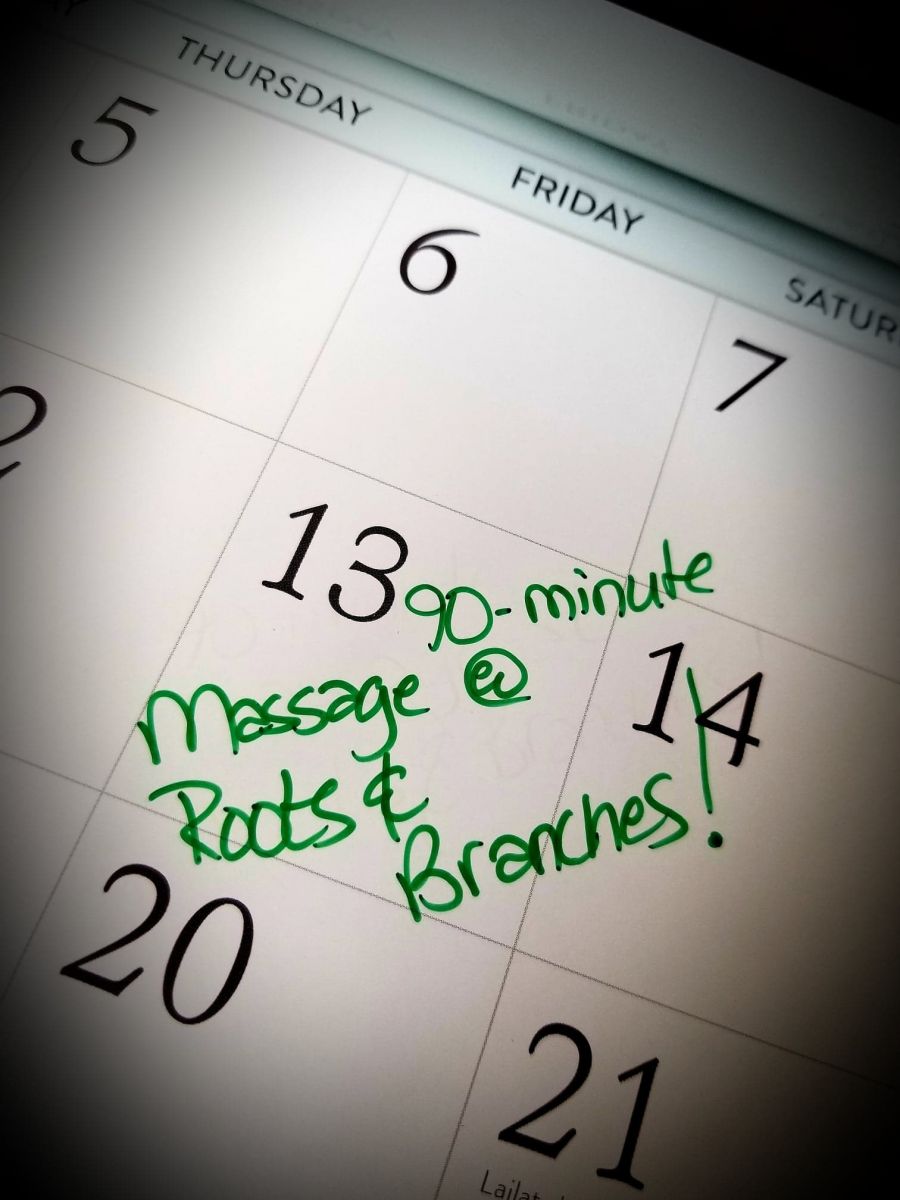 THURSDAY
FRIDAY
5
6
7
13
90-minute
Massage @
Roots &
Branches!
14
20
21